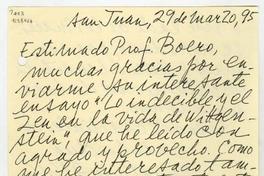 San Juan, 29 de marzo, 95
Estimado Prof. Boero,
muchas gracias por en-
viarme su interesante
ensayo "Lo indecible y el
Zen en la vida de Wittgen-
stein", que he leído con
agrado y provecho. Como
que he interesado tam-